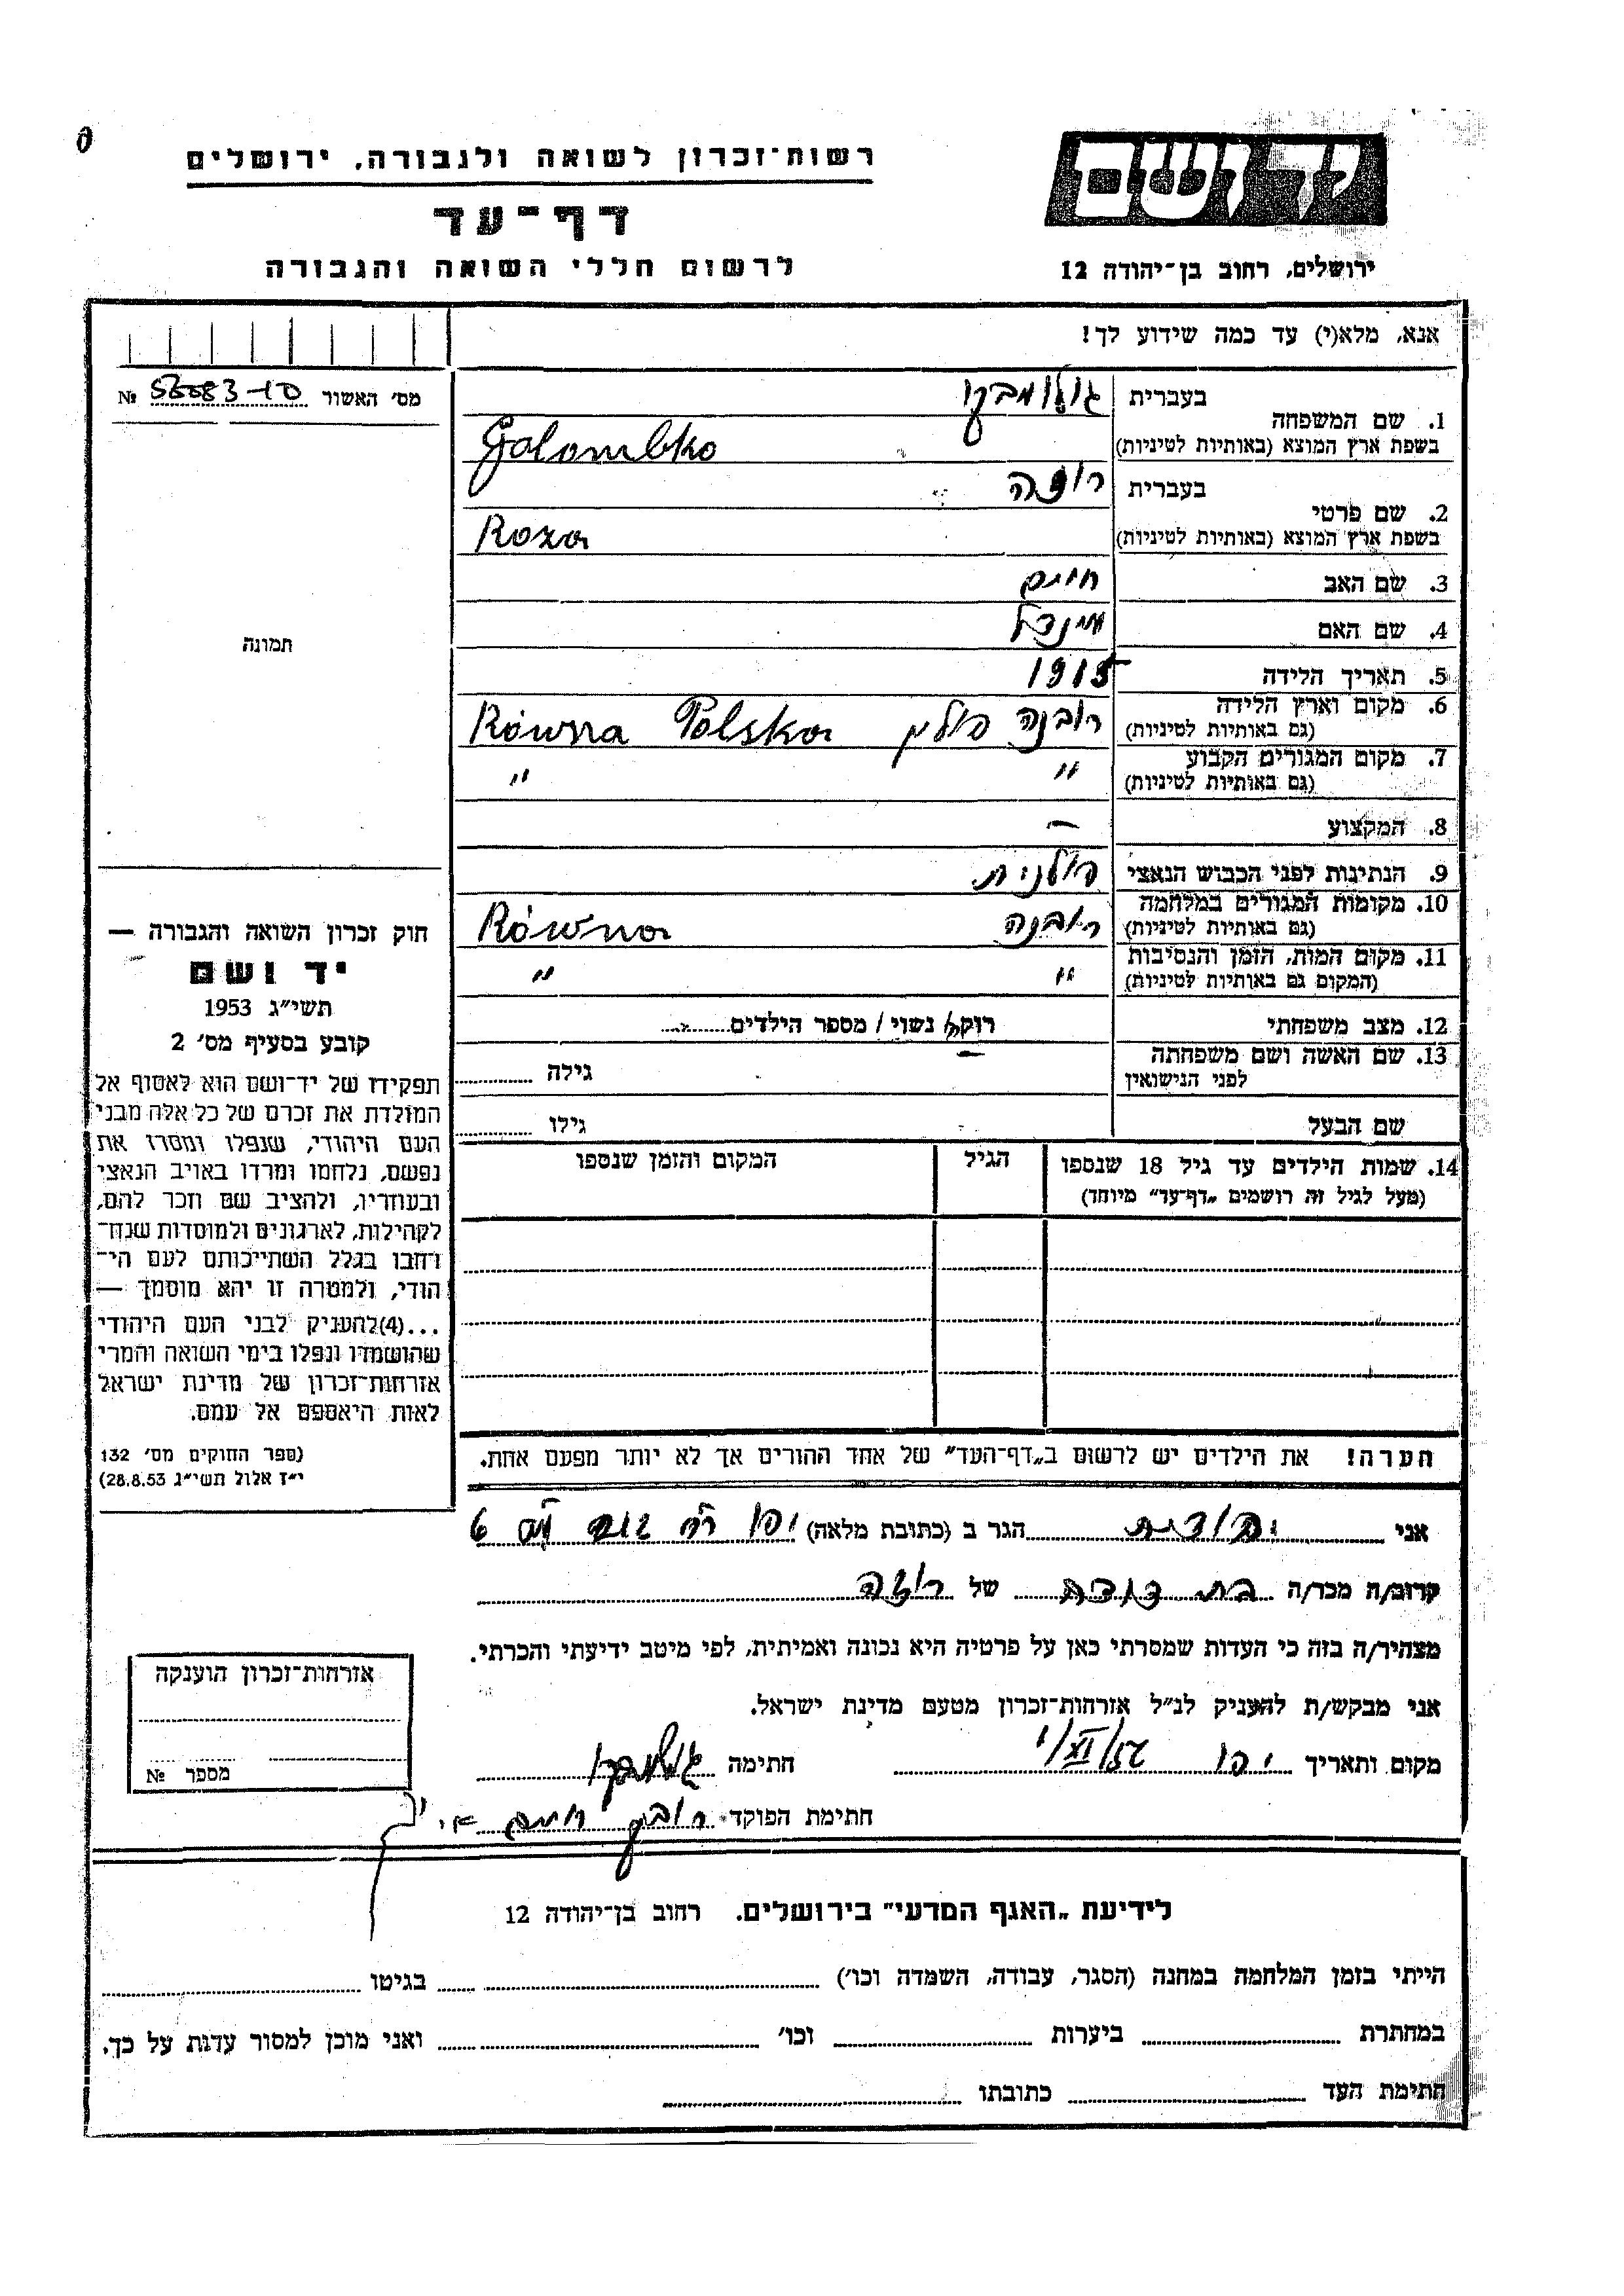 רשות־זכרון לשואה ולגבורה, ירושלים
יד ושם
דף־עד
לרשום חללי השואה והגבורה
ירושלים, רחוב בן־יהודה 12
אנא, מלא(י) עד כמה שידוע לך!
מס׳ האשור № 56083-10
1. שם המשפחה בעברית גולומבקו
בשפת ארץ המוצא (באותיות לטיניות) Golombko
2. שם פרטי בעברית רוזה
בשפת ארץ המוצא (באותיות לטיניות) Roza
3. שם האב חיים
4. שם האם מינדל
5. תאריך הלידה 1915
6. מקום וארץ הלידה רובנה פולין Równa Polska
(גם באותיות לטיניות)
7. מקום המגורים הקבוע " "
(גם באותיות לטיניות)
8. המקצוע —
9. הנתינות לפני הכבוש הנאצי פולנית
10. מקומות המגורים במלחמה רובנה Równa
(גם באותיות לטיניות)
11. מקום המות, הזמן והנסיבות " "
(המקום גם באותיות לטיניות)
12. מצב משפחתי רוק/ה נשוי/ מספר הילדים
13. שם האשה ושם משפחתה — גילה
לפני הנישואין
שם הבעל גילו
14. שמות הילדים עד גיל 18 שנספו הגיל המקום והזמן שנספו
(מעל לגיל זה רושמים „דף־עד" מיוחד)
תמונה
חוק זכרון השואה והגבורה —
יד ושם
תשי״ג 1953
קובע בסעיף מס׳ 2
תפקידו של יד־ושם הוא לאסוף אל
המולדת את זכרם של כל אלה מבני
העם היהודי, שנפלו ומסרו את
נפשם, נלחמו ומרדו באויב הנאצי
ובעוזריו, ולהציב שם וזכר להם,
לקהילות, לארגונים ולמוסדות שנח־
רחבו בגלל השתייכותם לעם הי־
הודי, ולמטרה זו יהא מוסמך —
...(4)להעניק לבני העם היהודי
שהושמדו ונפלו בימי השואה והמרי
אזרחות־זכרון של מדינת ישראל
לאות היאספם אל עמם.
(ספר החוקים מס׳ 132
י״ז אלול תשי״ג 28.8.53)
הערה! את הילדים יש לרשום ב„דף־העד" של אחד ההורים אך לא יותר מפעם אחת.
אני יהודית הגר ב (כתובת מלאה) יפו רח 6
קרוב/ה מכר/ה בת דודה של רוזה
מצהיר/ה בזה כי העדות שמסרתי כאן על פרטיה היא נכונה ואמיתית, לפי מיטב ידיעתי והכרתי.
אני מבקש/ת להעניק לנ״ל אזרחות־זכרון מטעם מדינת ישראל.
מקום ותאריך יפו חתימה גולומבקו
חתימת הפוקד חיים
אזרחות־זכרון הוענקה
מספר №
לידיעת „האגף המדעי" בירושלים. רחוב בן־יהודה 12
הייתי בזמן המלחמה במחנה (הסגר, עבודה, השמדה וכו׳) בגיטו
במחתרת ביערות וכו׳ ואני מוכן למסור עדות על כך.
חתימת העד כתובתו